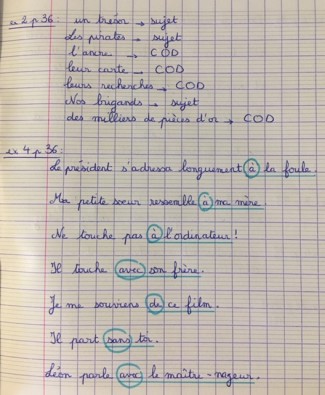 ex 2 p 36 : un trésor → sujet
Les pirates → sujet
l'ancre → COD
leur carte → COD
leurs recherches → COD
Nos brigands → sujet
des milliers de pièces d'or → COD
ex 4 p 36 :
Le président s'adressa longuement à la foule.
Ma petite sœur ressemble à ma mère.
Ne touche pas à l'ordinateur !
Il touche avec son frère.
Je me souviens de ce film.
Il part sans toi.
Léon parle avec le maître-nageur.